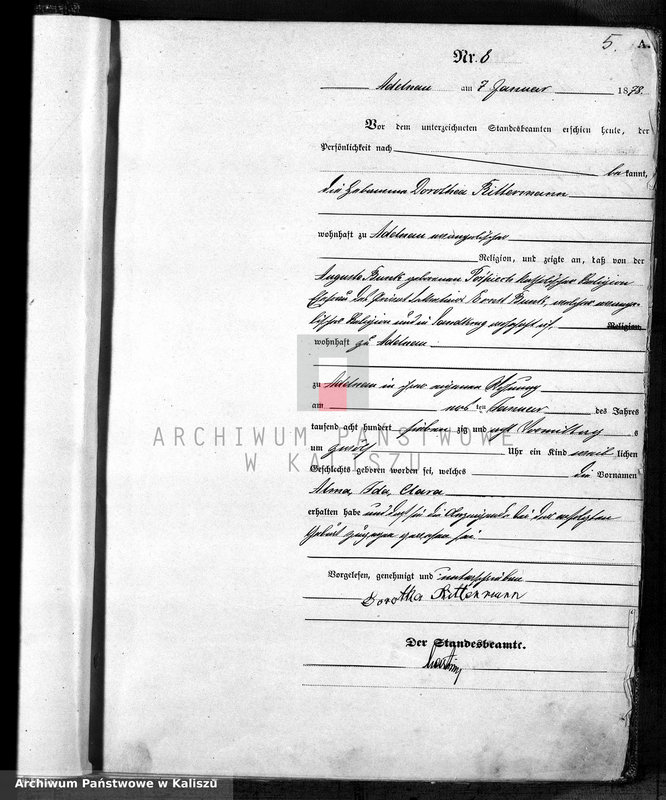 5.
A.
Nr. 8
Adelnau am 7 Januar 1878.
Vor dem unterzeichneten Standesbeamten erschien heute, der
Persönlichkeit nach
bekannt,
die Hebamme Dorothea Rittermann
wohnhaft zu Adelnau evangelischer
Religion, und zeigte an, daß von der
Auguste geborenen katholischer Religion
Ehefrau des Ernst welcher evange-
lischer Religion und in wohnhaft ist, Religion,
wohnhaft zu Adelnau
zu Adelnau in ihrer eigenen Wohnung
am ten Januar des Jahres
tausend acht hundert sieben zig und acht Vormittags
um zwölf Uhr ein Kind weiblichen
Geschlechts geboren worden sei, welches die Vornamen
Alma, Ida, Clara
erhalten habe und daß sie die Anzeigende bei der erfolgten
Geburt zugegen gewesen sei.
Vorgelesen, genehmigt und unterschrieben
Dorothea Rittermann
Der Standesbeamte.
ARCHIWUM PAŃSTWOWE
W KALISZU
Archiwum Państwowe w Kaliszu